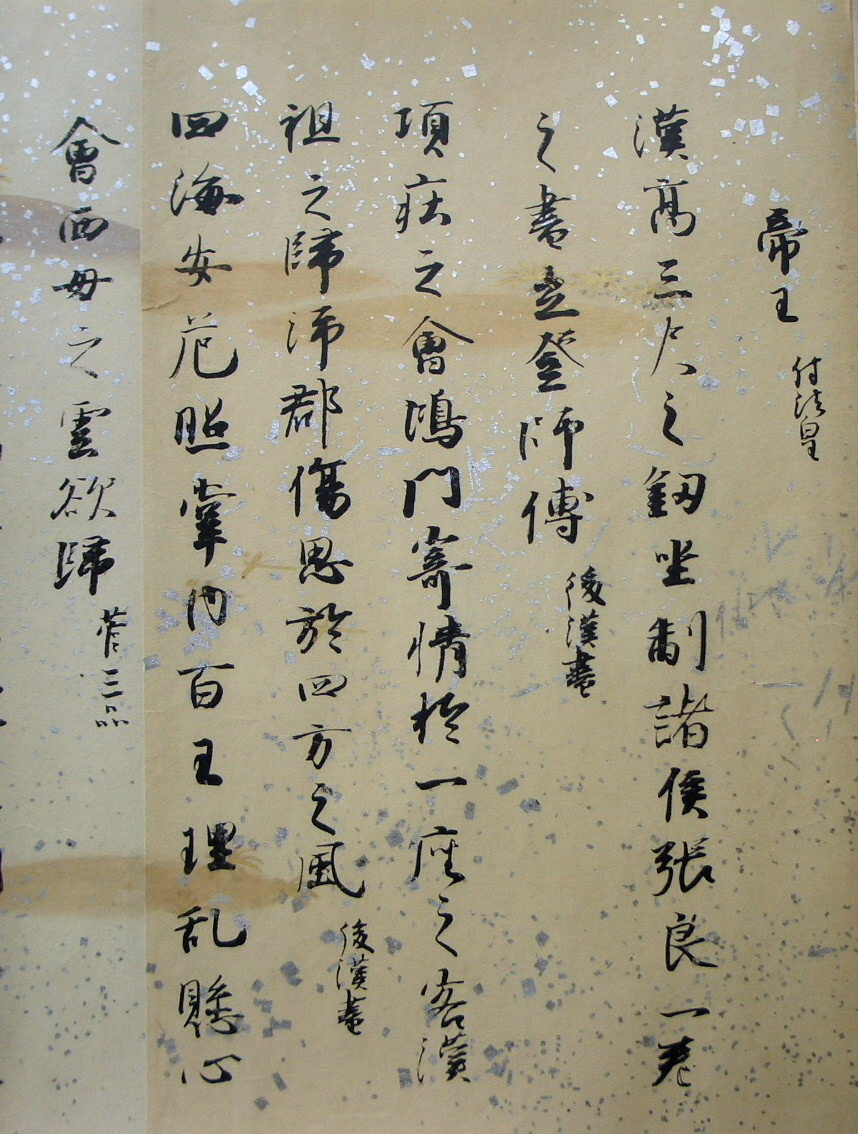 帝王 付法皇
漢高三尺之釼坐制諸侯張良一巻
之書立登師傅 後漢書
項荘之會鴻門寄情於一座之客漢
祖之歸沛郡傷思於四方之風 後漢書
四海安危照掌内百王理乱懸心
會西母之雲欲歸 菅三品